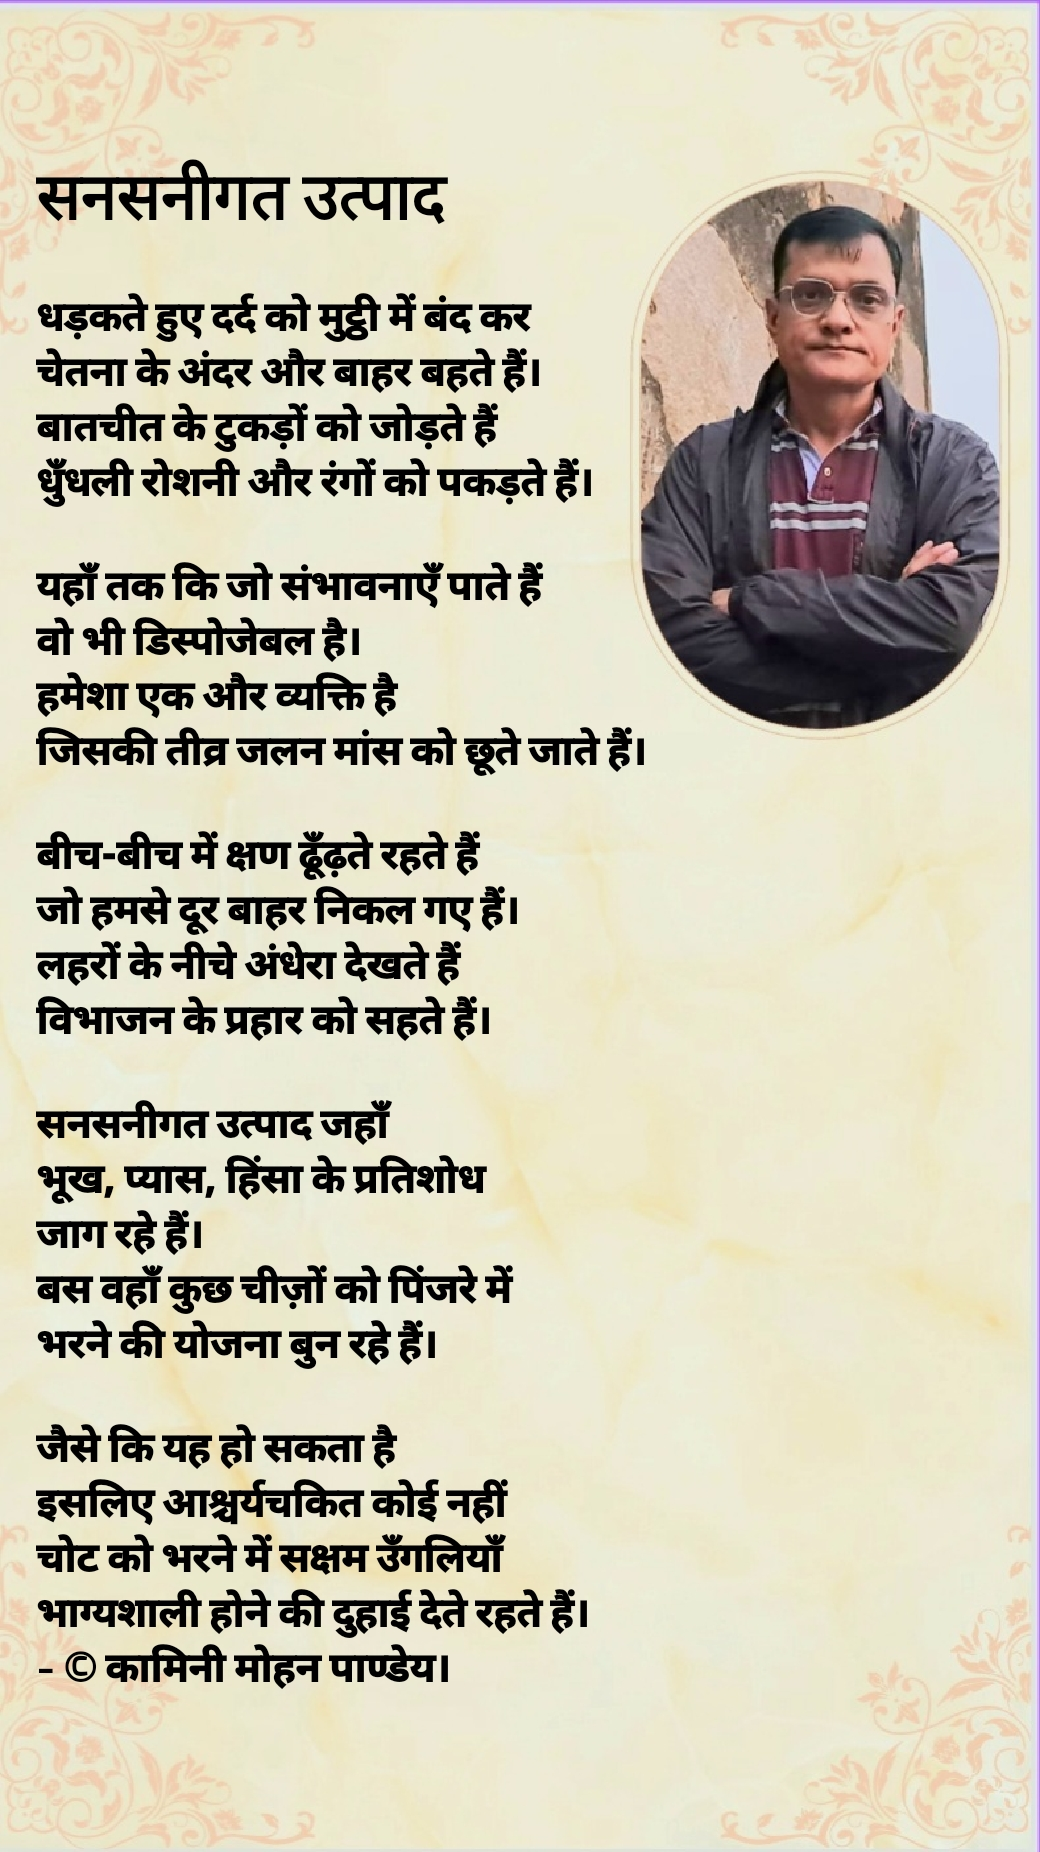 सनसनीगत उत्पाद
धड़कते हुए दर्द को मुट्ठी में बंद कर
चेतना के अंदर और बाहर बहते हैं।
बातचीत के टुकड़ों को जोड़ते हैं
धुँधली रोशनी और रंगों को पकड़ते हैं।
यहाँ तक कि जो संभावनाएँ पाते हैं
वो भी डिस्पोजेबल है।
हमेशा एक और व्यक्ति है
जिसकी तीव्र जलन मांस को छूते जाते हैं।
बीच-बीच में क्षण ढूँढ़ते रहते हैं
जो हमसे दूर बाहर निकल गए हैं।
लहरों के नीचे अंधेरा देखते हैं
विभाजन के प्रहार को सहते हैं।
सनसनीगत उत्पाद जहाँ
भूख, प्यास, हिंसा के प्रतिशोध
जाग रहे हैं।
बस वहाँ कुछ चीज़ों को पिंजरे में
भरने की योजना बुन रहे हैं।
जैसे कि यह हो सकता है
इसलिए आश्चर्यचकित कोई नहीं
चोट को भरने में सक्षम उँगलियाँ
भाग्यशाली होने की दुहाई देते रहते हैं।
- © कामिनी मोहन पाण्डेय।